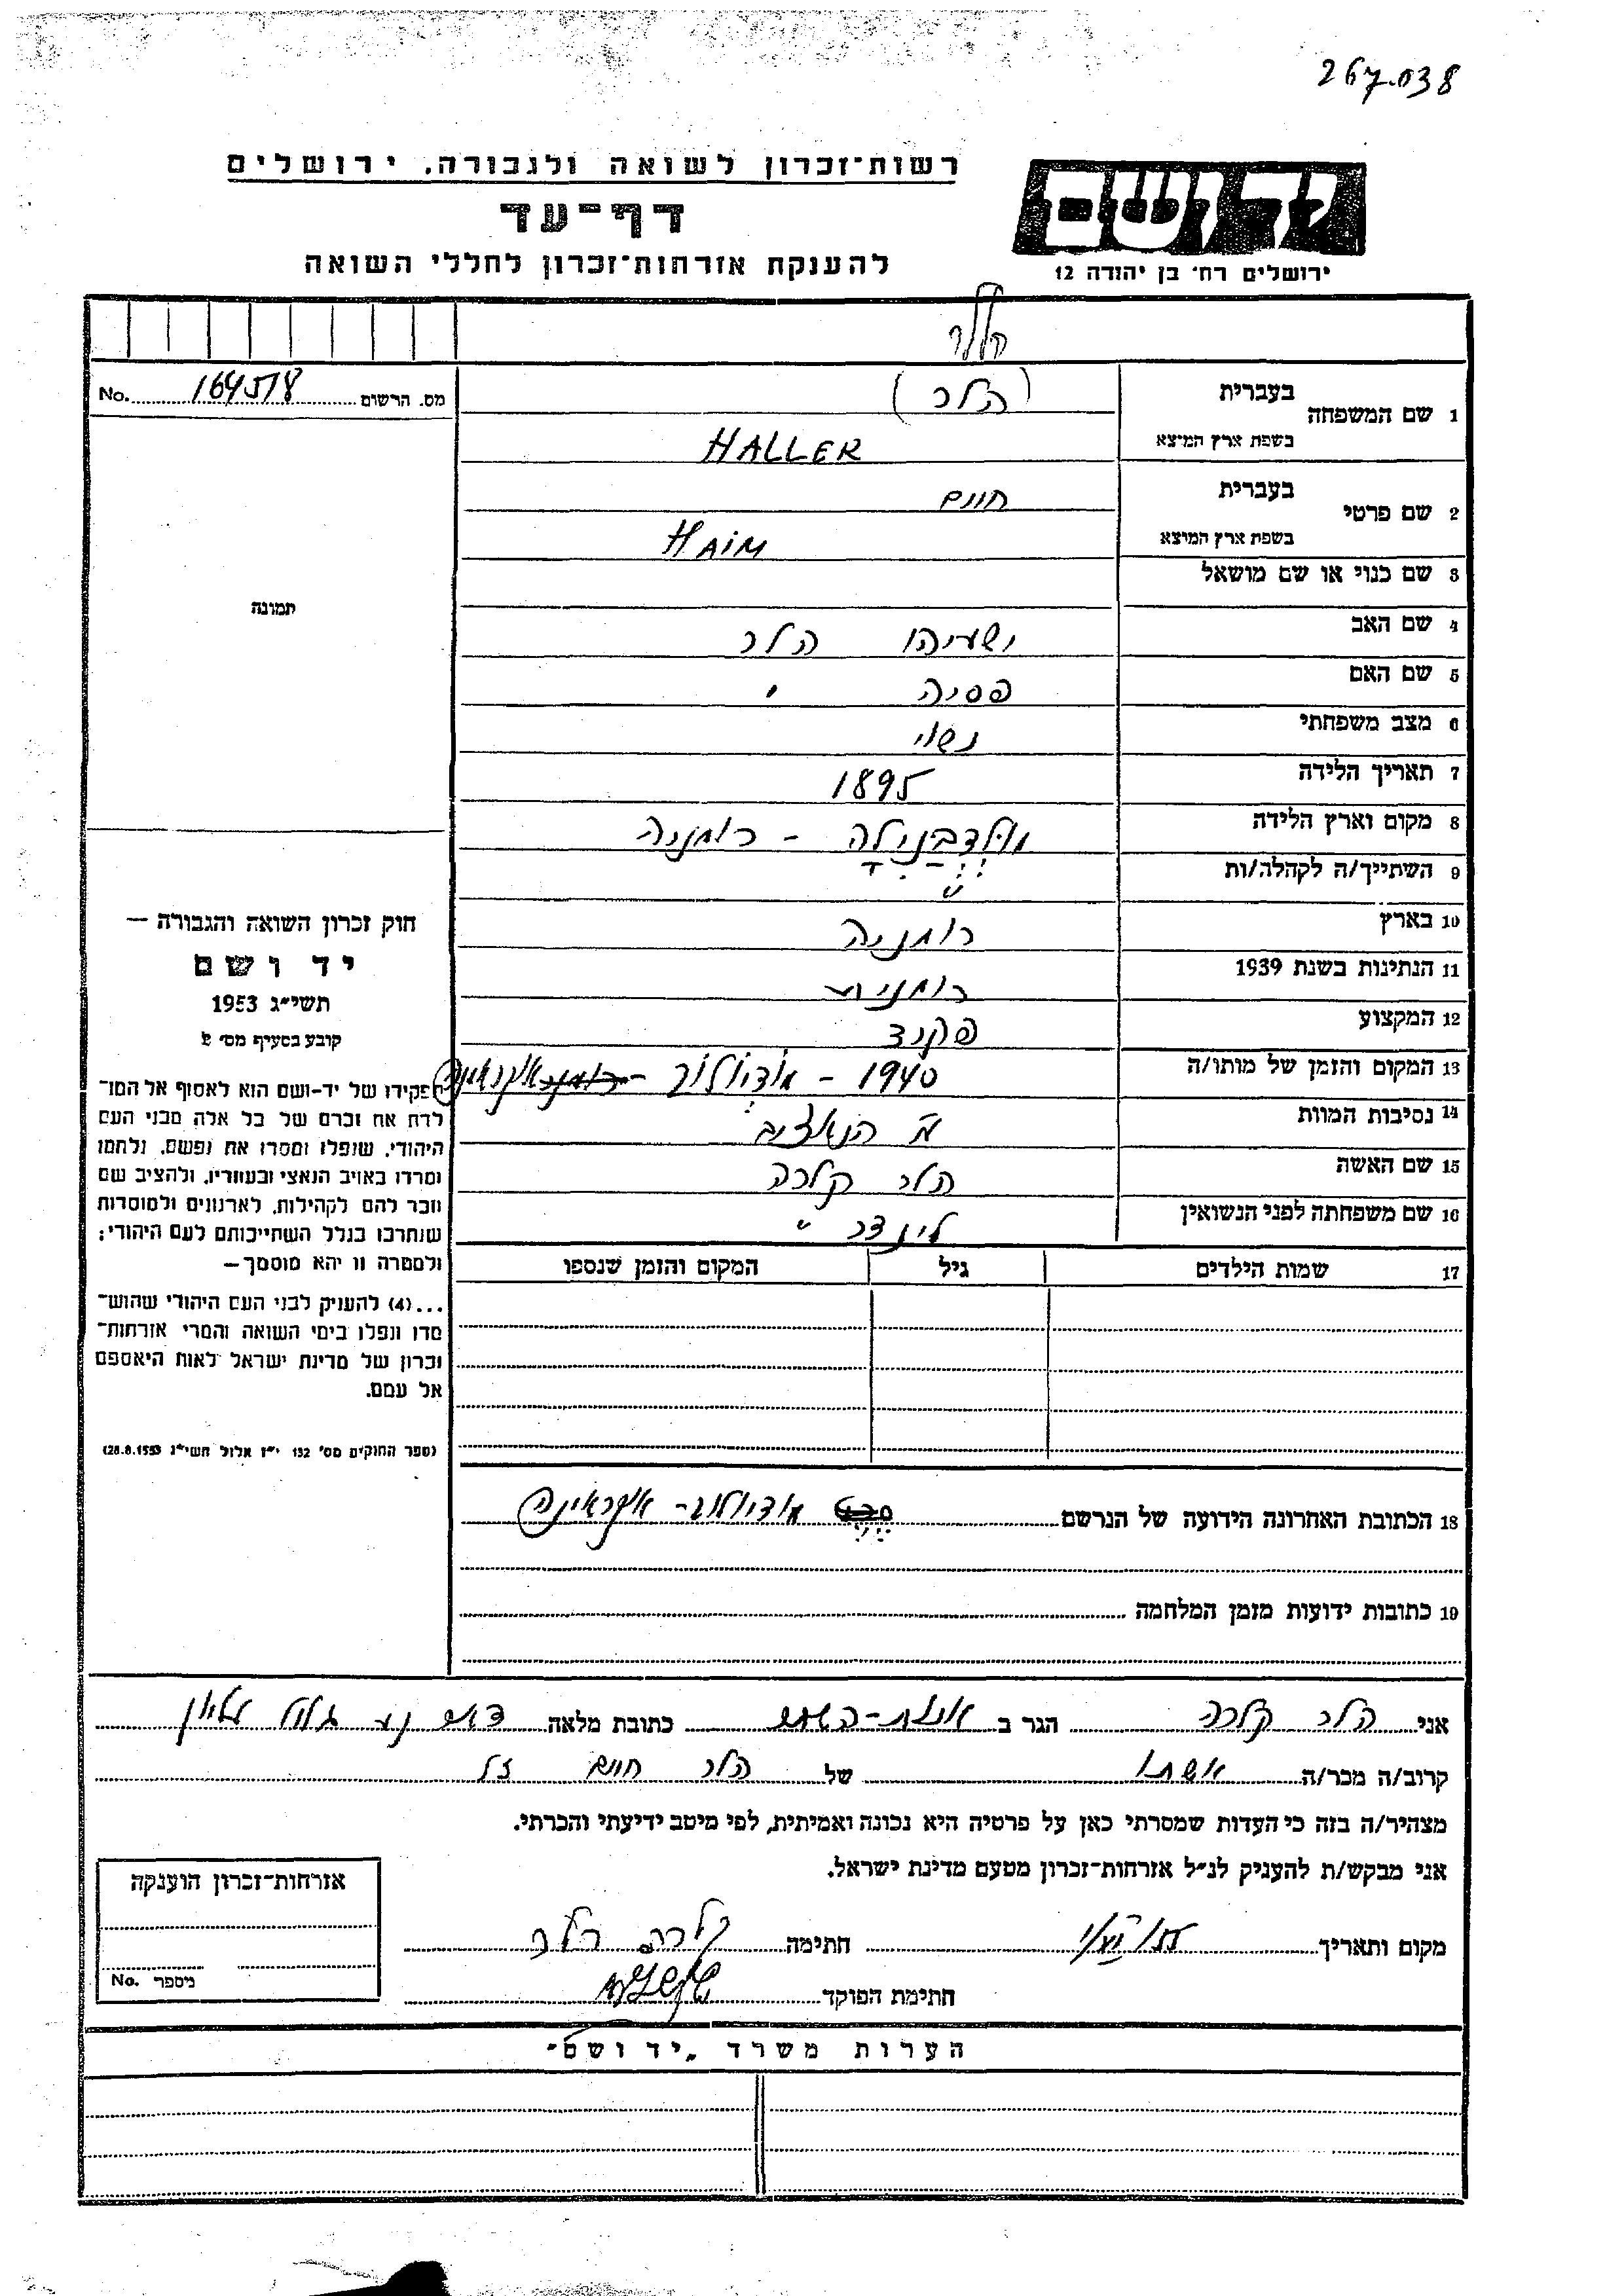 267.038
רשות־זכרון לשואה ולגבורה, ירושלים
דף־עד
להענקת אזרחות־זכרון לחללי השואה
יד ושם
ירושלים רח' בן יהודה 12
הללר
מס. הרשום 164578 No.
תמונה
1 שם המשפחה
בעברית (הלר)
בשפת ארץ המוצא HALLER
2 שם פרטי
בעברית חיים
בשפת ארץ המוצא HAIM
3 שם כנוי או שם מושאל
4 שם האב ישעיהו הלר
5 שם האם פסיה "
6 מצב משפחתי נשוי
7 תאריך הלידה 1895
8 מקום וארץ הלידה - רומניה
9 השתייך/ה לקהלה/ות "
10 בארץ רומניה
11 הנתינות בשנת 1939 רומנית
12 המקצוע פקיד
13 המקום והזמן של מותו/ה 1940 - מודיולוב - רומני אוקראינה
14 נסיבות המוות ע"י הנאצים
15 שם האשה הלר קלרה
16 שם משפחתה לפני הנשואין לינדר "
17 שמות הילדים גיל המקום והזמן שנספו
18 הכתובת האחרונה הידועה של הנרשם מודיולוב - אוקראינה
19 כתובות ידועות מזמן המלחמה
חוק זכרון השואה והגבורה —
יד ושם
תשי"ג 1953
קובע בסעיף מס' 2
תפקידו של יד-ושם הוא לאסוף אל המו־
לדת את זכרם של כל אלה מבני העם
היהודי, שנפלו ומסרו את נפשם, נלחמו
ומרדו באויב הנאצי ובעוזריו, ולהציב שם
וזכר להם לקהילות, לארגונים ולמוסדות
שנחרבו בגלל השתייכותם לעם היהודי;
ולמטרה זו יהא מוסמך—
...(4) להעניק לבני העם היהודי שהוש־
מדו ונפלו בימי השואה והמרי אזרחות־
זכרון של מדינת ישראל לאות היאספם
אל עמם.
(ספר החוקים מס' 132 י"ז אלול תשי"ג 28.8.1953)
אני הלר קלרה הגר ב כתובת מלאה
קרוב/ה מכר/ה אשתו של הלר חיים ז"ל
מצהיר/ה בזה כי העדות שמסרתי כאן על פרטיה היא נכונה ואמיתית, לפי מיטב ידיעתי והכרתי.
אני מבקש/ת להעניק לנ"ל אזרחות־זכרון מטעם מדינת ישראל.
מקום ותאריך חתימה קלרה הלר
חתימת הפוקד
אזרחות־זכרון הוענקה
מיספר No.
הערות משרד „יד ושם"